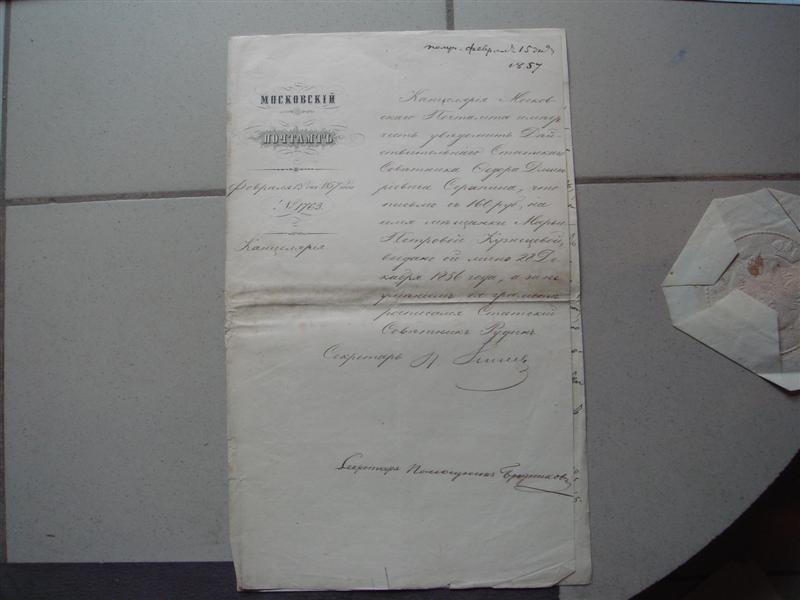 получ. февраля 15 дня
1857
МОСКОВСКІЙ
ПОЧТАМТЪ
Февраля 15 дня 1857 года
№ 1703.
Канцелярія
Канцелярія Москов-
скаго Почтамта имѣетъ
честь увѣдомить Дѣй-
ствительнаго Статскаго
Совѣтника Ѳедора Дмит-
ріевича что
письмо съ 160 руб, на
имя мѣщанки Марьи
Петровой Кузнецовой,
выдано ей лично 28 Де-
кабря 1856 года, а за не
умѣніемъ ея грамотѣ
росписался Статскій
Совѣтникъ Рудинъ
Секретарь
Секретаря Помощникъ